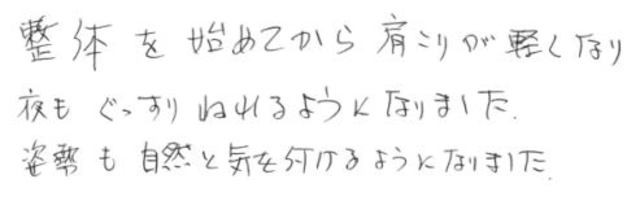 整体を始めてから肩こりが軽くなり
夜もぐっすりねれるようになりました.
姿勢も自然と気を付けるようになりました.